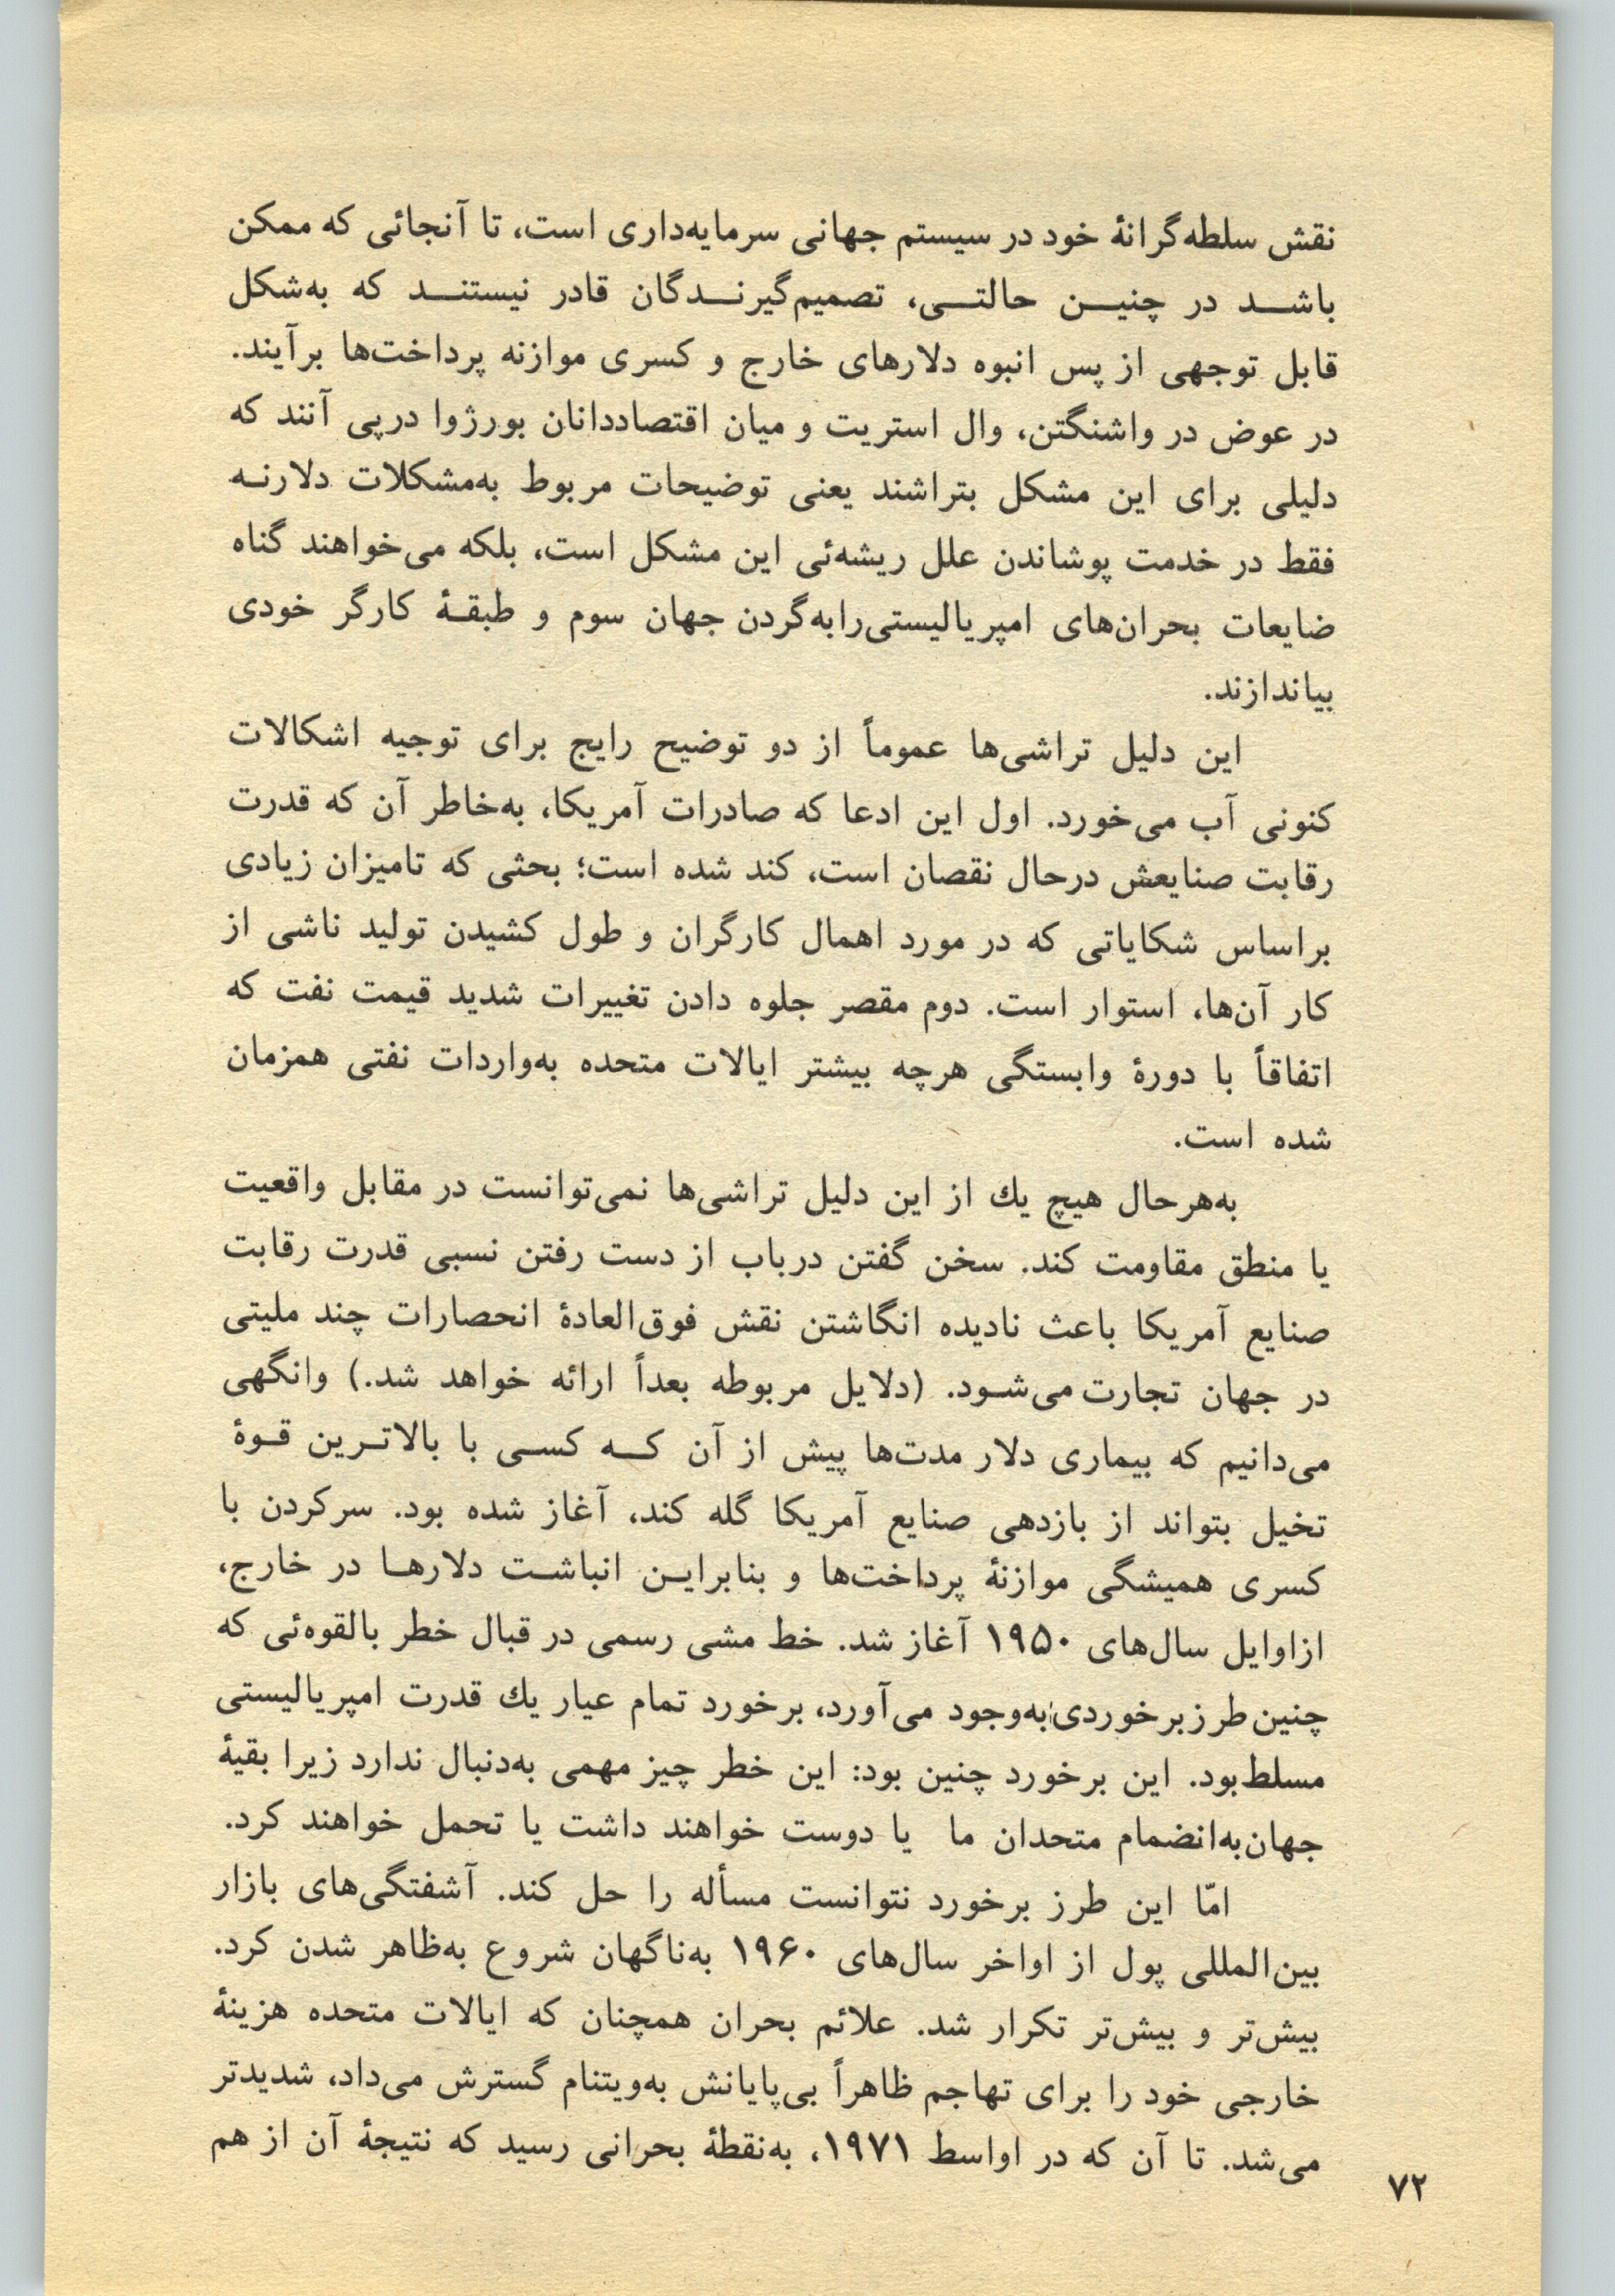 نقش سلطه‌گرانهٔ خود در سیستم جهانی سرمایه‌داری است، تا آنجائی که ممکن
باشد در چنین حالتی، تصمیم‌گیرندگان قادر نیستند که به‌شکل
قابل توجهی از پس انبوه دلارهای خارج و کسری موازنه پرداخت‌ها برآیند.
در عوض در واشنگتن، وال استریت و میان اقتصاددانان بورژوا درپی آنند که
دلیلی برای این مشکل بتراشند یعنی توضیحات مربوط به‌مشکلات دلارنه
فقط در خدمت پوشاندن علل ریشه‌ئی این مشکل است، بلکه می‌خواهند گناه
ضایعات بحران‌های امپریالیستی‌رابه‌گردن جهان سوم و طبقهٔ کارگر خودی
بیاندازند.
این دلیل تراشی‌ها عموماً از دو توضیح رایج برای توجیه اشکالات
کنونی آب می‌خورد. اول این ادعا که صادرات آمریکا، به‌خاطر آن که قدرت
رقابت صنایعش درحال نقصان است، کند شده است؛ بحثی که تامیزان زیادی
براساس شکایاتی که در مورد اهمال کارگران و طول کشیدن تولید ناشی از
کار آن‌ها، استوار است. دوم مقصر جلوه دادن تغییرات شدید قیمت نفت که
اتفاقاً با دورهٔ وابستگی هرچه بیشتر ایالات متحده به‌واردات نفتی همزمان
شده است.
به‌هرحال هیچ یك از این دلیل تراشی‌ها نمی‌توانست در مقابل واقعیت
یا منطق مقاومت کند. سخن گفتن درباب از دست رفتن نسبی قدرت رقابت
صنایع آمریکا باعث نادیده انگاشتن نقش فوق‌العادهٔ انحصارات چند ملیتی
در جهان تجارت می‌شود. (دلایل مربوطه بعداً ارائه خواهد شد.) وانگهی
می‌دانیم که بیماری دلار مدت‌ها پیش از آن که کسی با بالاترین قوهٔ
تخیل بتواند از بازدهی صنایع آمریکا گله کند، آغاز شده بود. سرکردن با
کسری همیشگی موازنهٔ پرداخت‌ها و بنابراین انباشت دلارها در خارج،
ازاوایل سال‌های ۱۹۵۰ آغاز شد. خط مشی رسمی در قبال خطر بالقوه‌ئی که
چنین طرزبرخوردی به‌وجود می‌آورد، برخورد تمام عیار یك قدرت امپریالیستی
مسلط بود. این برخورد چنین بود: این خطر چیز مهمی به‌دنبال ندارد زیرا بقیهٔ
جهان‌به‌انضمام متحدان ما یا دوست خواهند داشت یا تحمل خواهند کرد.
امّا این طرز برخورد نتوانست مسأله را حل کند. آشفتگی‌های بازار
بین‌المللی پول از اواخر سال‌های ۱۹۶۰ به‌ناگهان شروع به‌ظاهر شدن کرد.
بیش‌تر و بیش‌تر تکرار شد. علائم بحران همچنان که ایالات متحده هزینهٔ
خارجی خود را برای تهاجم ظاهراً بی‌پایانش به‌ویتنام گسترش می‌داد، شدیدتر
می‌شد. تا آن که در اواسط ۱۹۷۱، به‌نقطهٔ بحرانی رسید که نتیجهٔ آن از هم
۷۲